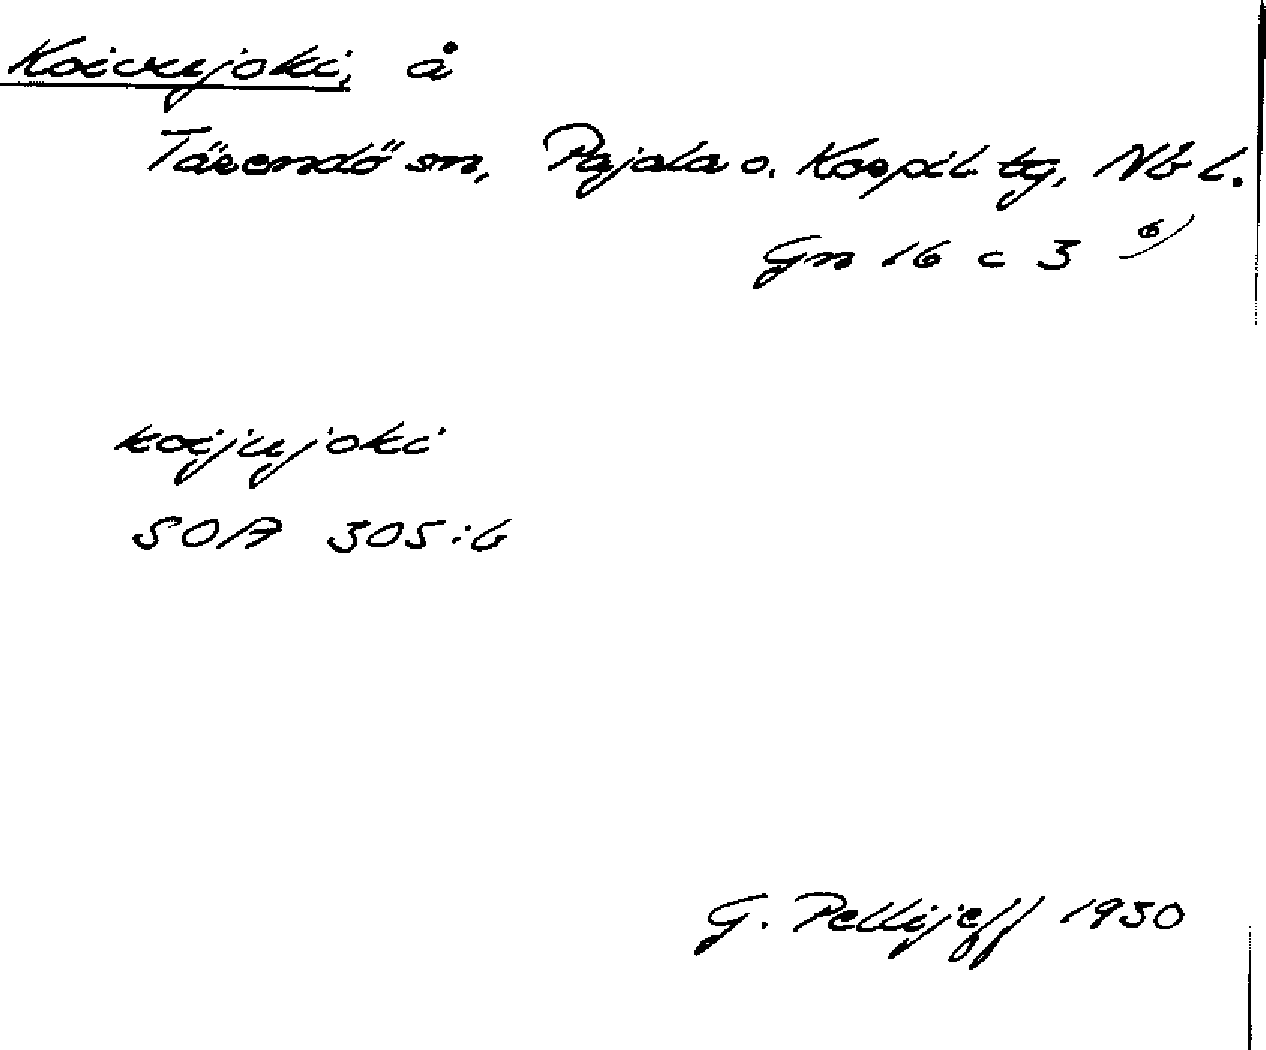 Koivujoki, å
Tärendö sn, Pajala o. Korpil. tg, Nb l.
Gn 16 c 3 6)
koijujoki
SOA 305:6
G. Pellijeff 1950